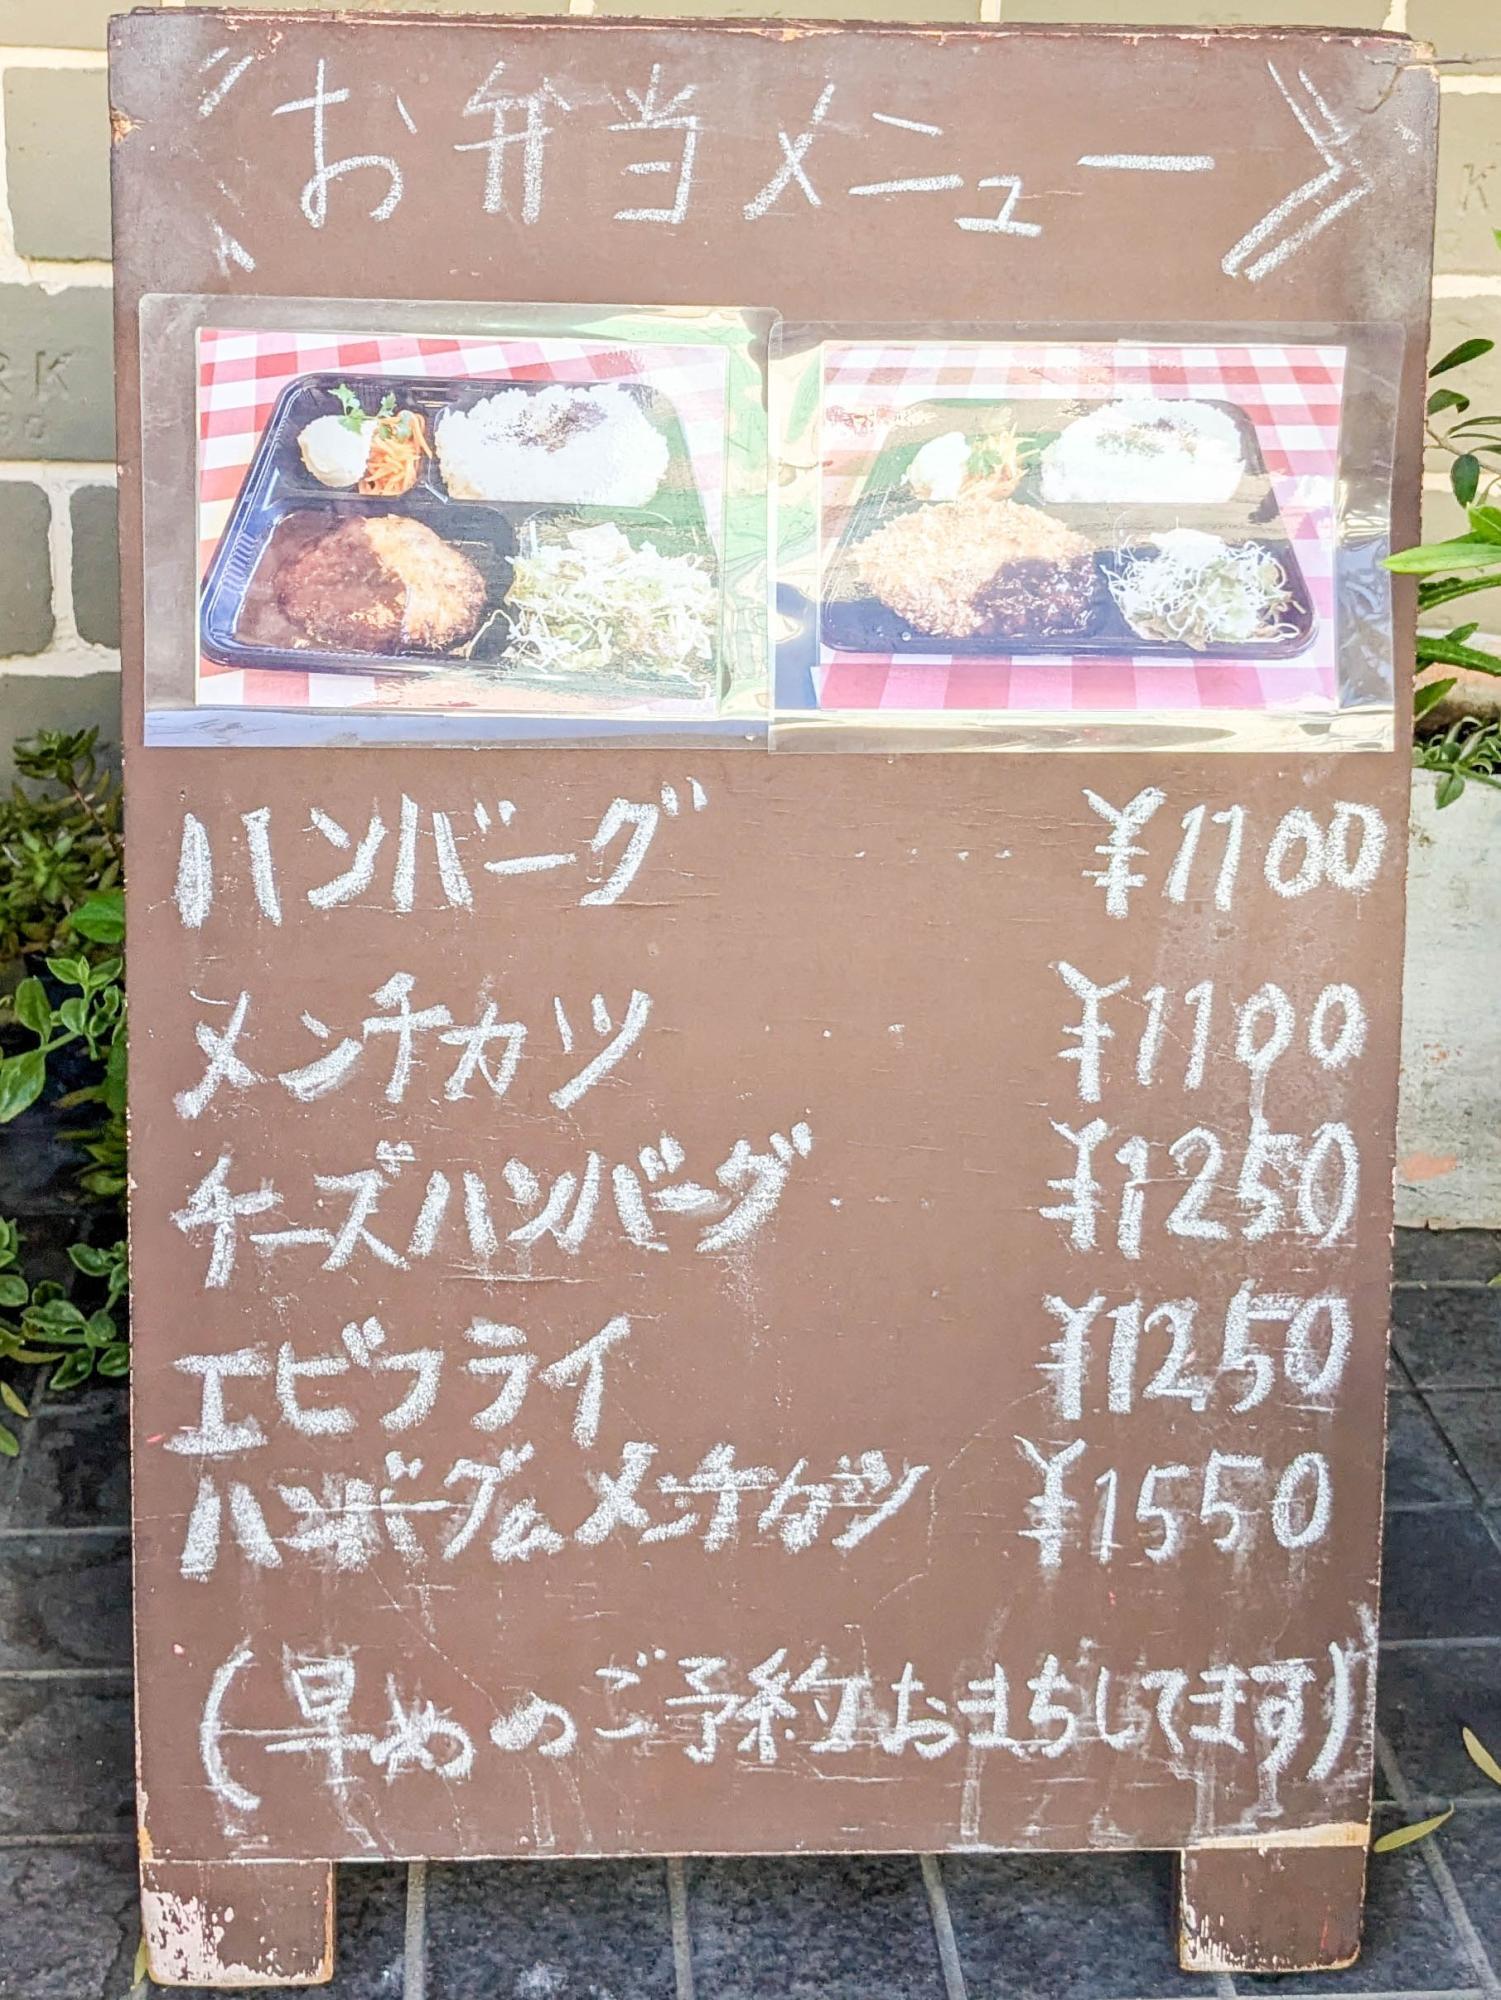 《お弁当メニュー》
ハンバーグ ¥1100
メンチカツ ¥1100
チーズハンバーグ ¥1250
エビフライ ¥1250
ハンバーグ&メンチカツ ¥1550
(早めのご予約おまちしてます)